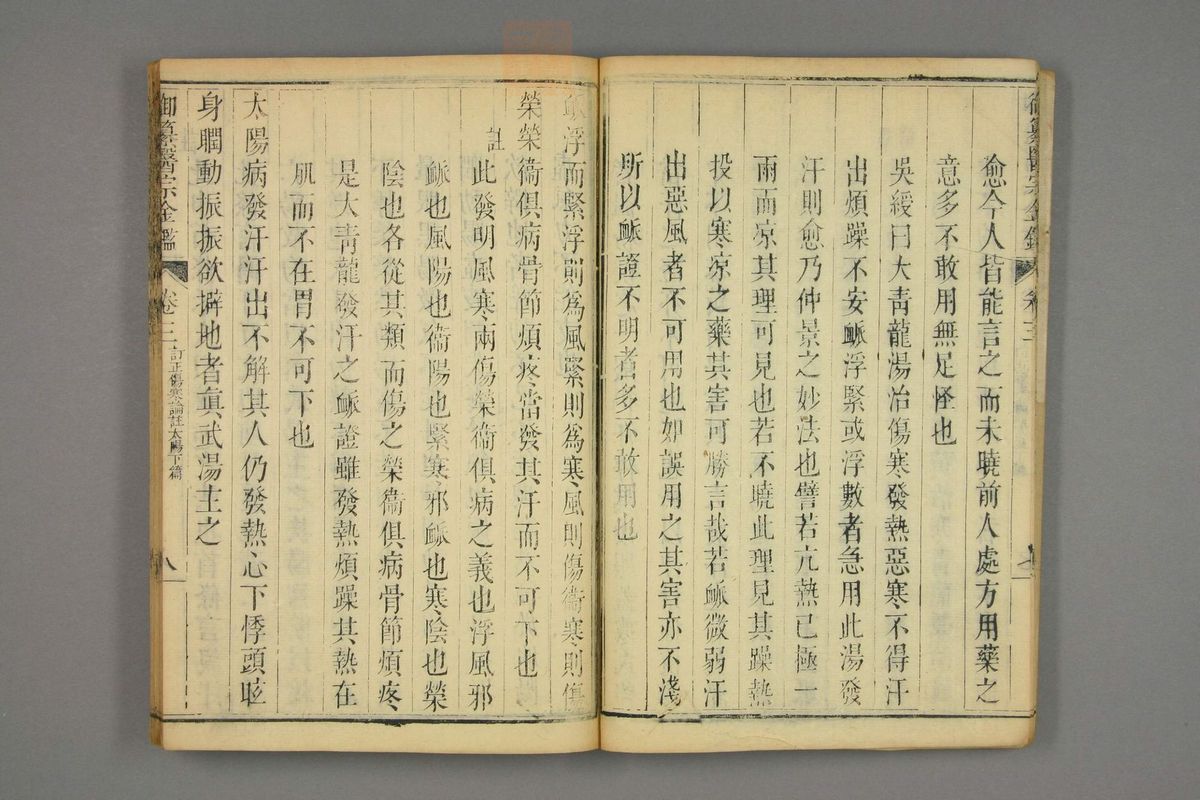 御纂醫宗金鑑 卷三
愈今人皆能言之而未曉前人處方用藥之
意多不敢用無足怪也
吳綬曰大青龍湯治傷寒發熱惡寒不得汗
出煩躁不安脈浮緊或浮數者急用此湯發
汗則愈乃仲景之妙法也譬若亢熱已極一
雨而凉其理可見也若不曉此理見其躁熱
投以寒凉之藥其害可勝言哉若脈微弱汗
出惡風者不可用也如誤用之其害亦不淺
所以脈證不明者多不敢用也
脈浮而緊浮則爲風緊則爲寒風則傷衞寒則傷
榮榮衞俱病骨節煩疼當發其汗而不可下也
註 此發明風寒兩傷榮衞俱病之義也浮風邪
脈也風陽也衞陽也緊寒邪脈也寒陰也榮
陰也各從其類而傷之榮衞俱病骨節煩疼
是大青龍發汗之脈證雖發熱煩躁其熱在
肌而不在胃不可下也
太陽病發汗汗出不解其人仍發熱心下悸頭眩
身瞤動振振欲擗地者眞武湯主之
御纂醫宗金鑑 卷三 訂正傷寒論註太陽下篇 八